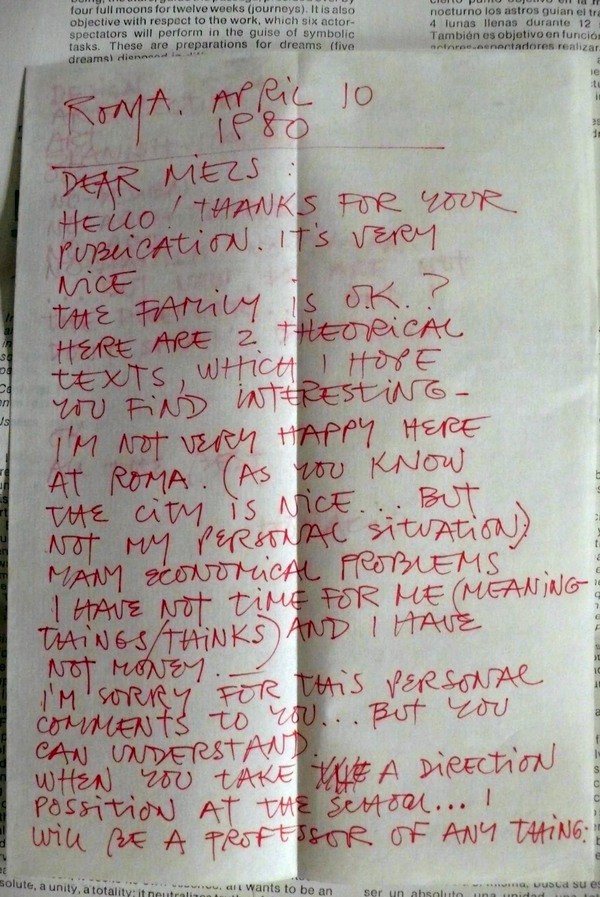 four full moons for twelve weeks (journeys). It is also
objective with respect to the work, which six actor-
spectators will perform in the guise of symbolic
tasks. These are preparations for dreams (five
nocturno los astros guían el
4 lunas llenas durante 12
También es objetivo en función
actores-espectadores realizar
ROMA. APRIL 10
1980
DEAR MELS :
HELLO! THANKS FOR YOUR
PUBLICATION. IT'S VERY
NICE
THE FAMILY IS O.K.?
HERE ARE 2 THEORICAL
TEXTS, WHICH I HOPE
YOU FIND INTERESTING -
I'M NOT VERY HAPPY HERE
AT ROMA. (AS YOU KNOW
THE CITY IS NICE... BUT
NOT MY PERSONAL SITUATION)
MANY ECONOMICAL PROBLEMS
I HAVE NOT TIME FOR ME (MEANING
THINGS/THINKS) AND I HAVE
NOT MONEY. —
I'M SORRY FOR THIS PERSONAL
COMMENTS TO YOU... BUT YOU
CAN UNDERSTAND.
WHEN YOU TAKE A DIRECTION
POSSITION AT THE SCHOOL... I
WILL BE A PROFESSOR OF ANY THING.
absolute, a unity, a totality; it
art wants to be an
ser un absoluto, una unidad, una